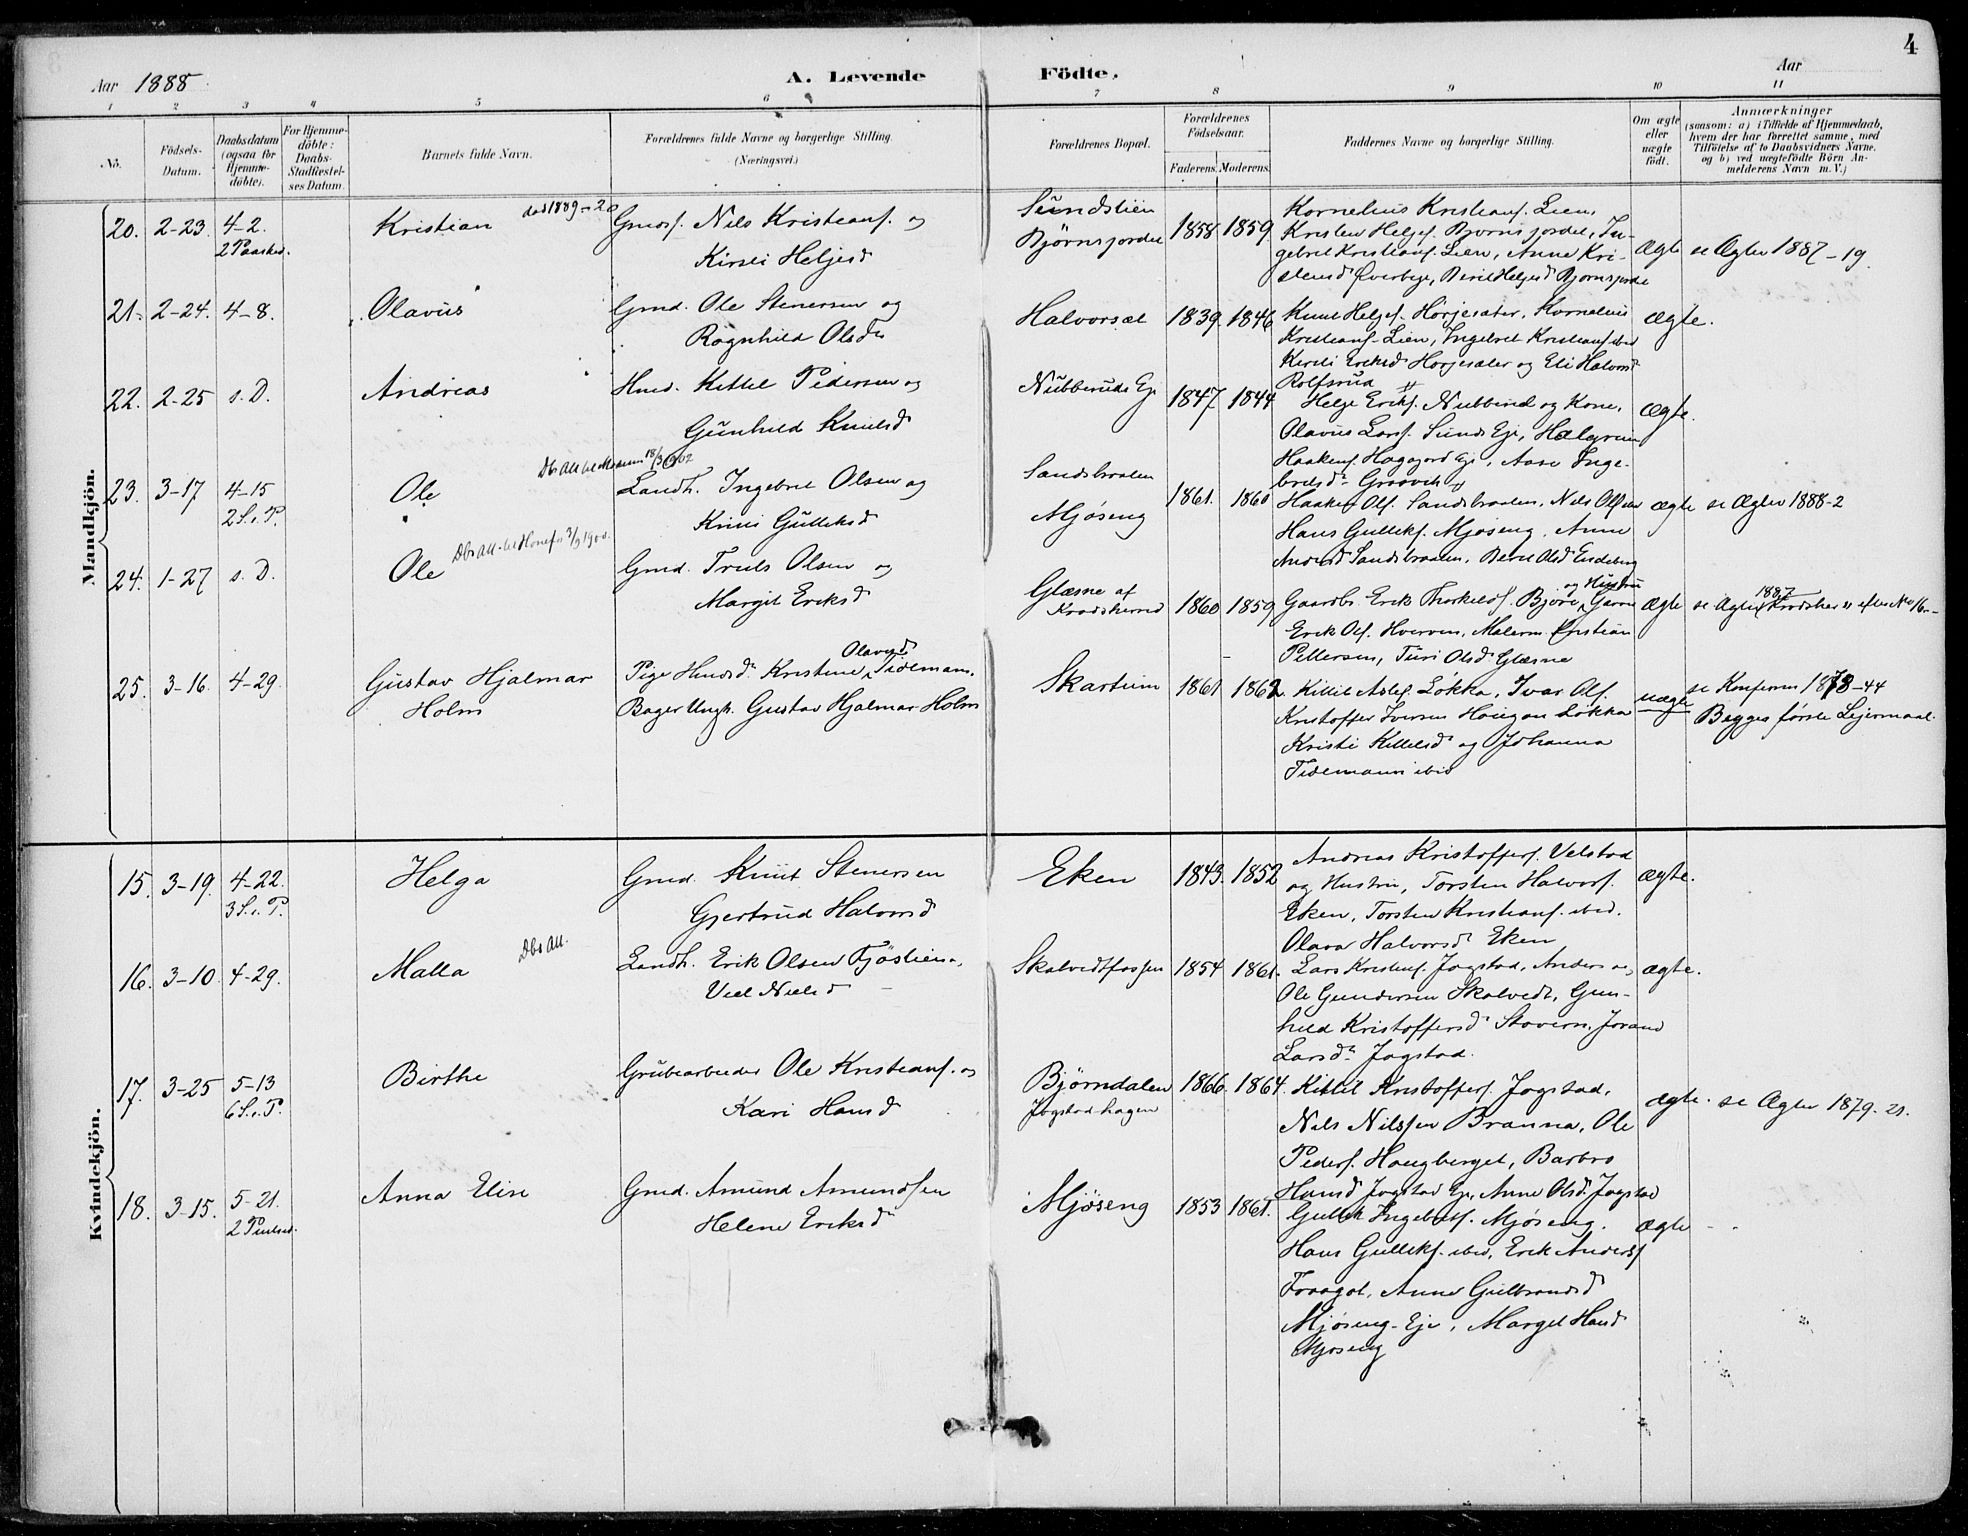 4
Aar 1888.
A. Levende Födte.
Aar
1 2 3 4 5 6 7 8 9 10 11
No.
Födsels-Datum.
Daabsdatum (ogsaa for Hjemme-döbte).
For Hjemme-döbte: Daabs-Stadfæstel-ses Datum.
Barnets fulde Navn.
Forældrenes fulde Navne og borgerlige Stilling.
(Næringsvei.)
Forældrenes Bopæl.
Forældrenes Födselsaar.
Faderens. Moderens.
Faddernes Navne og borgerlige Stilling.
Om ægte eller uægte födt.
Anmærkninger
(saasom: a) i Tilfælde af Hjemmedaab,
hvem der har forrettet samme, med
Tilföielse af to Daabsvidners Navne.
og b) ved uægtefödte Börn An-
melderens Navn m. V.)
Mandkjön.
20. 2-23 4-2. 2 Paasked. Kristian død 1889-20
Gmdsf. Nils Kristians. og
Kirsti Heljesd
Sundslien
Bjørnsjordet
1858 1859
Kornelius Kristians. Lien,
Kristen Heljes. Bjørnsjordet, In-
gebret Kristians. Lien, Anne Kri-
stensd Øverbye, Berit Helgesd Bjørnsjorde
Ægte se Ægtev 1887-19.
21. 2-24. 4-8. Olavus
Gmd. Ole Stenersen og
Rognhild Olsdr
Halvorsæt
1839. 1846
Knut Helges. Hørjesæter, Kornelius
Kristians. Lien, Ingebret Kristians. ibid
Kirsti Eriksd Horjesæter og Eli Halvorsd
Rolfsrud
ægte.
22. 2-25 s. D. Andreas
Hmd. Kittel Pedersen og
Gunhild Knutsd
Nubberuds Eje
1847. 1844
Helge Eriks. Nubberud og Kone,
Olavus Lars. Sunds Eje, Halgrim
Haakens. Hagagord Eje, Aase Inge-
bretsd
ægte.
23. 3-17 4-15 2 S. e. P. Ole
Landh. Ingebret Olsen og
Gulleksd
Sandsbraaten
Mjøseng
1861. 1860
Haaken Ols. Sandsbraaten, Nils Olsen
Hans Gulleks. Mjøseng, Anne
Andersd Sandsbraaten, Berit Olsd
ægte se Ægtev 1888-2
24. 1-27 s. D. Ole
Gmd. Truls Olsen og
Margit Eriksd
Glæsne af
Krødsherred
1860 1859
Gaardbr. Erik Thorkelds. Bjøre og Hustru,
Erik Ols. Hverven, Maleren Christian
Pettersen, Turi Olsd Glæsne
Ægte
25. 3-16. 4-29. Gustav Hjalmar
Holm
Pige Hmdsd Kristine Olavesd Tidemann.
Bager Ungk. Gustav Hjalmar Holm
Skartum
1861 1862.
Kittil Aslefs. Løkka, Ivar Ols.
Kristoffer Iversen Haugan Løkka
Kristi Kittelsd og Johanna
Tidemann ibid
uægte
se Konfermn 1878-44
Begges første Lejermaal.
Kvindekjön.
15. 3-19. 4-22. 3 S. e. P. Helga
Gmd. Knut Stenersen
Gjertrud Halvorsd
Eken
1843. 1852
Andreas Kristoffers. Velstad
og Hustru, Torsten Halvors.
Eken, Torsten Kristians. ibid.
Olava Halvorsd Eken
ægte.
16. 3-10 4-29. Malla Dbs Att.
Landh. Erik Olsen
Nielsd
Skalvedtfossen
1854 1861.
Lars Kristens. Jogstad, Anders og
Ole Gundersen Skalvedt, Gun-
hild Kristoffersd Stavern, Jorand
Larsd. Jogstad.
ægte.
17. 3-25 5-13 6 S. e. P. Birthe
Grubearbeider Ole Kristians. og
Kari Hansd
Bjørndalen
Jogstadhagen
1866. 1864.
Kittil Kristoffers. Jogstad,
Nils Nilssen Branna, Ole
Peders. Haugberget, Barbro
Hansd Jogstad Eje, Anne Olsd Jogstad
ægte. se Ægtev 1879-21.
18. 3-15. 5-21. 2 Pintsed. Anna Elise
Gmd. Amund Amundsen
Helene Eriksd
Mjøseng
1853 1861.
Gullik Ingebrets. Mjøseng.
Hans Gulleks. ibid, Erik Anders.
Anne Gulbrandsd
Mjøseng-Eje, Margit Hansd
Mjøseng
ægte